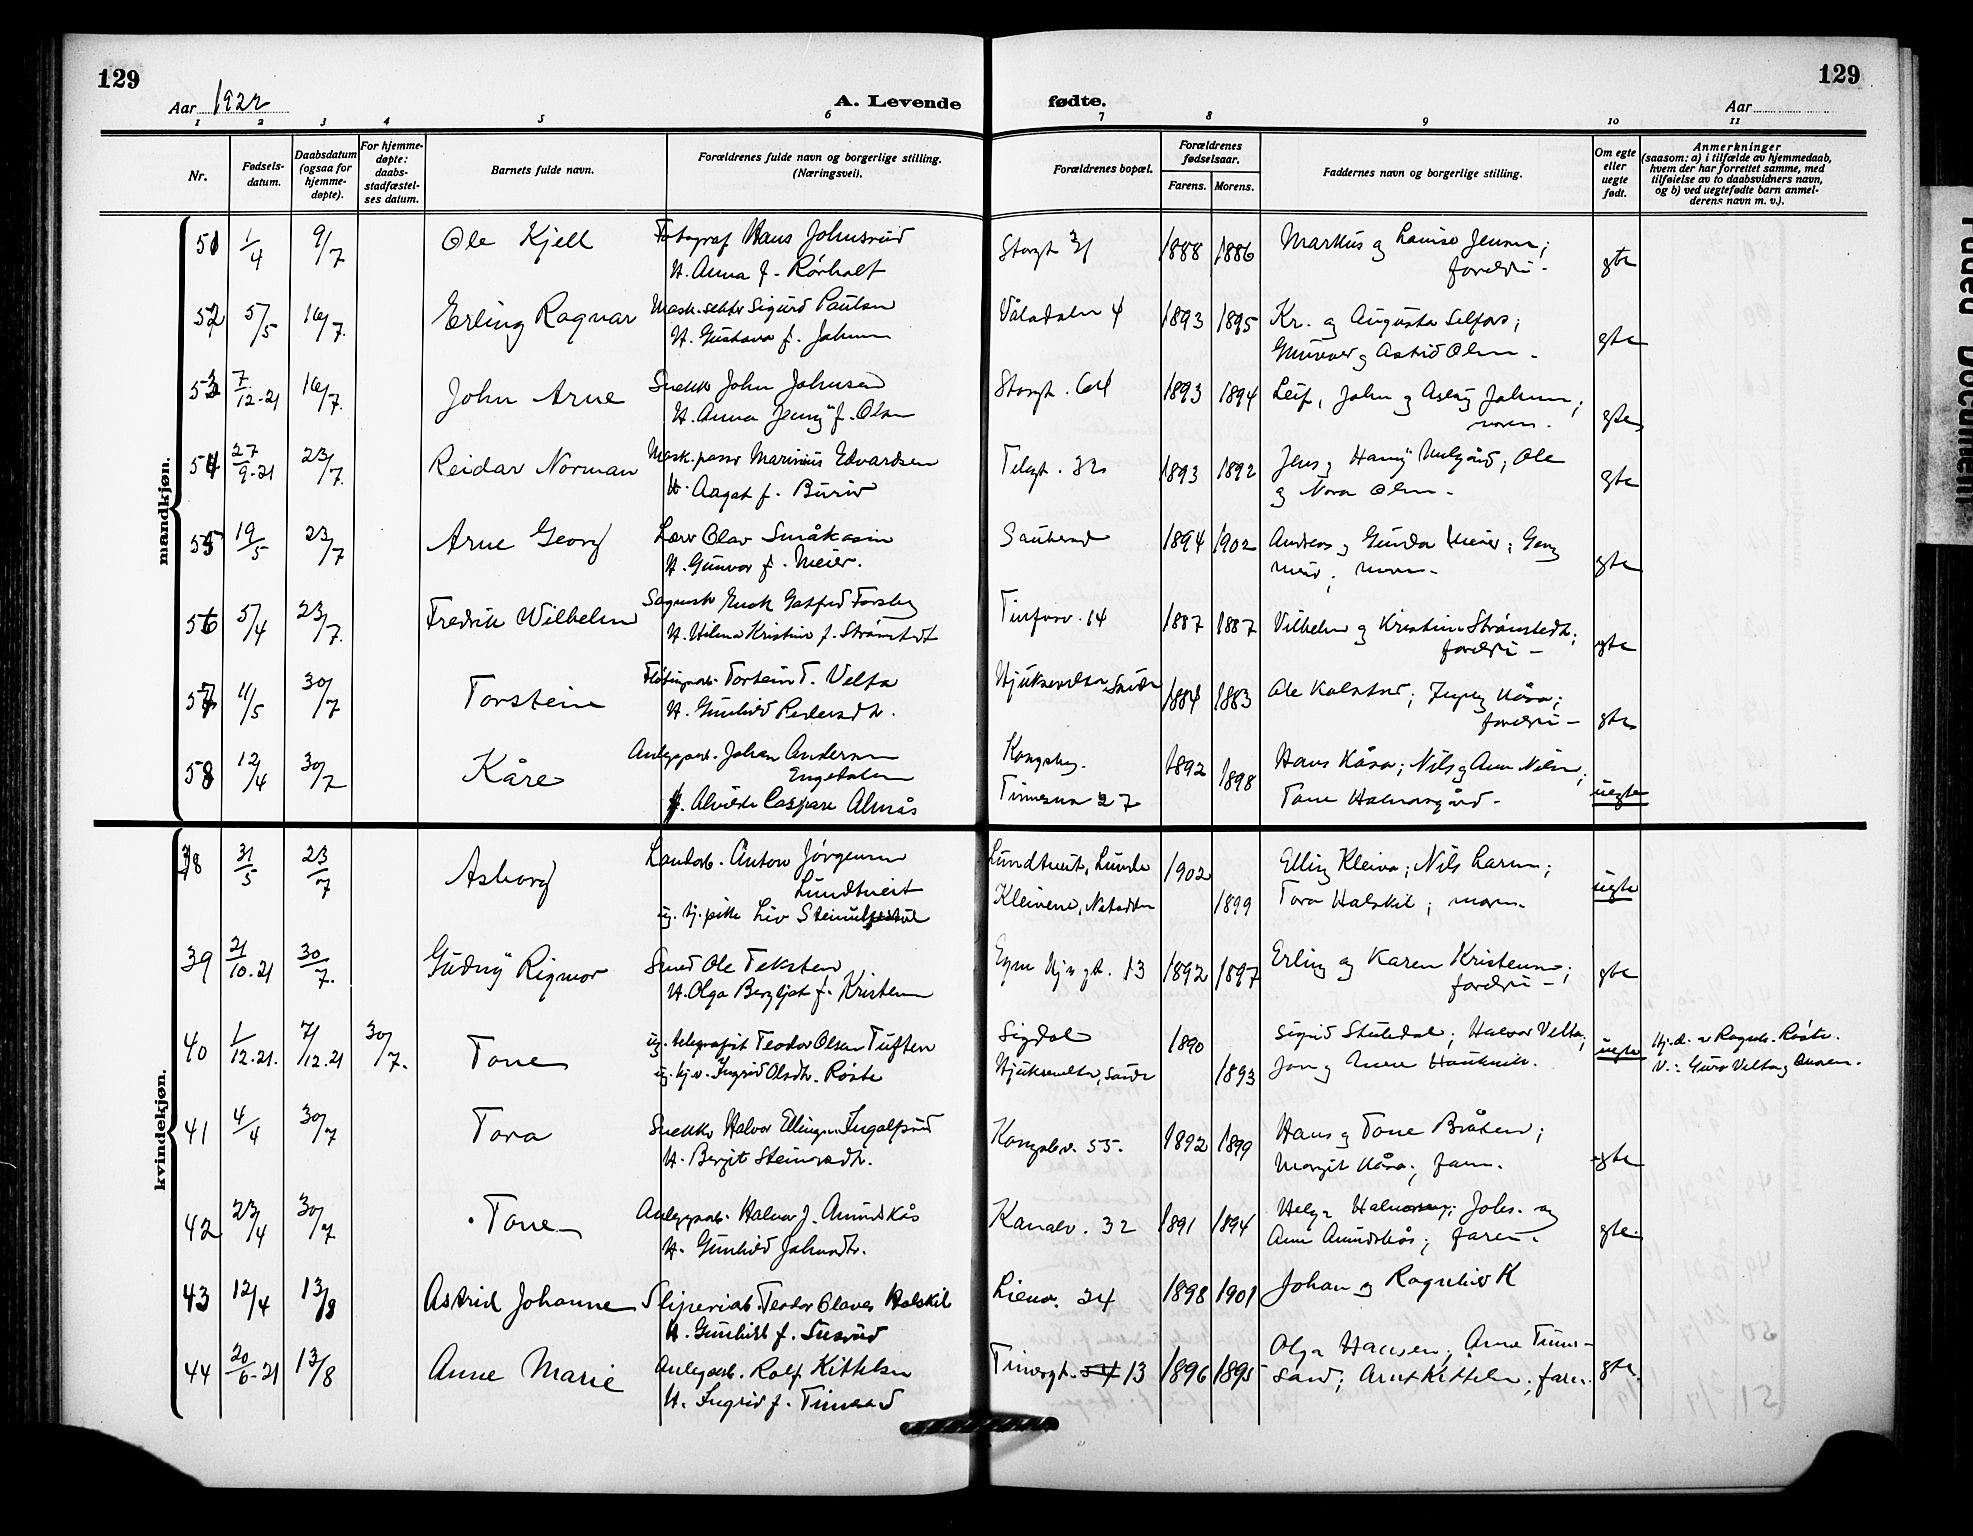 129
129
Aar 1922
A. Levende fødte.
Aar
1 2 3 4 5 6 7 8 9 10 11
Nr.
Fødsels-
datum.
Daabsdatum
(ogsaa for
hjemme-
døpte).
For hjemme-
døpte:
daabs-
stadfæstel-
ses datum.
Barnets fulde navn.
Forældrenes fulde navn og borgerlige stilling.
(Næringsvei).
Forældrenes bopæl.
Forældrenes
fødselsaar.
Farens. Morens.
Faddernes navn og borgerlige stilling.
Om egte
eller
uegte
født.
Anmerkninger
(saasom: a) i tilfælde av hjemmedaab,
hvem der har forrettet samme, med
tilføielse av to daabsvidners navn,
og b) ved uegtefødte barn anmel-
derens navn m. v.).
mandkjøn.
51 1/4 9/7 Ole Kjell Fotograf Hans Johnsrud Storgt 31 1888 1886 Markus og Louise Jensen; egte
H. Anna f. Rørholt foreldre.
52 5/5 16/7. Erling Ragnar Sigurd Paulsen 4 1893 1895 Kr. og Augusta Selfors; egte
H. Gustava f. Johnsen Gunvor og Astrid Olsen.
53 7/12-21 16/7. John Arne Snekker John Johnsen Storgt. 64 1893 1894 Leif, John og Aslaug Johnsen; egte
H. Anna Jenny f. Olsen moren.
54 27/9-21 23/7. Reidar Norman Mask.passer Marinius Edvardsen Telegt. 32 1893 1892 Jens og Hanny; Ole egte
H. Aagot f. og Nora Olsen.
55 19/5 23/7 Arne Georg Lærer Olav Småkasin Sauherad 1894 1902 Andreas og Gunda Meier; Georg egte
H. Gunvor f. Meier. Meier; moren.
56 5/4 23/7. Fredrik Wilhelm Enok Gotfred Forsberg Tinfosv. 14 1887 1887 Vilhelm og Kristine Strömstedt; egte
H. Hilma Kristine f. Strömstedt foreldre
57 11/5 30/7 Torstein Torstein T. Velta Hjuksevelta, Sauher. 1884 1883 Ole Kolstad; Ingebg Kåsa; egte
H. Gunhild Pedersdtr. foreldre
58 12/4 30/7 Kåre Anleggsarb. Johan Andersen Kongsbg. 1892 Hans Kåsa; Nils og Anne Nilsen; uegte
Engedalen
Alvilde Caspara Almås Tinnesmo 27 1898 Tone Halvorsgård.
kvindekjøn.
38 31/5 23/7 Asborg Landarb. Anton Jörgensen Lundtveit, Lunde 1902 Elling Kleiva; Nils Larsen; uegte
Lundtveit
ug. tj.pike Liv Kleivene, Notodden 1899 Tora Halskil; moren.
39 21/10.21 30/7. Gudny Rigmor Smed Ole Teksten 13 1892 1897 Erling og Karen Kristensen; egte
H. Olga Bergljot f. Kristensen foreldre
40 1/12.21. 7/12.21 30/7. Tone ug. telegrafist Teodor Olsen Tuften Sigdal 1890 Sigrid Stuledal; Halvor Velta; uegte Hj.d. v Ragnh. Röste.
ug. hj.v. Ingrid Olsdtr. Röste Hjuksevelta, Sauher 1893 Jon og V.: Guro Velta og moren.
41 4/4 30/7 Tora Snekker Halvor Ellingsen Ingolfsrud Kongsbv. 55. 1892 1899 Hans og Tone Bråten; egte
H. Bergit Steinarsdtr. Margit Kåsa; faren.
42 23/4 30/7 Tone Anleggsarb. Halvor J. Amundskås Kanalv. 32 1891 1894 Helge Halvorsen; Johs. og egte.
H. Gunhild Johnsdtr. Anne Amundskås; faren.
43 12/4 13/8 Astrid Johanne Sliperiarb. Teodor Olaves Halskil Lienv. 34 1898 1901 Johan og Ragnhild K
H. Gunhild f. Susrud
44 20/6-21 13/8 Anne Marie Anlegsarb. Rolf Kittelsen Tinnesgt. 54 13 1896 1895 Olga Hansen; Anne Tinne- egte.
H. Ingrid f. Tinnesand sand; Arnt Kittelsen; faren.